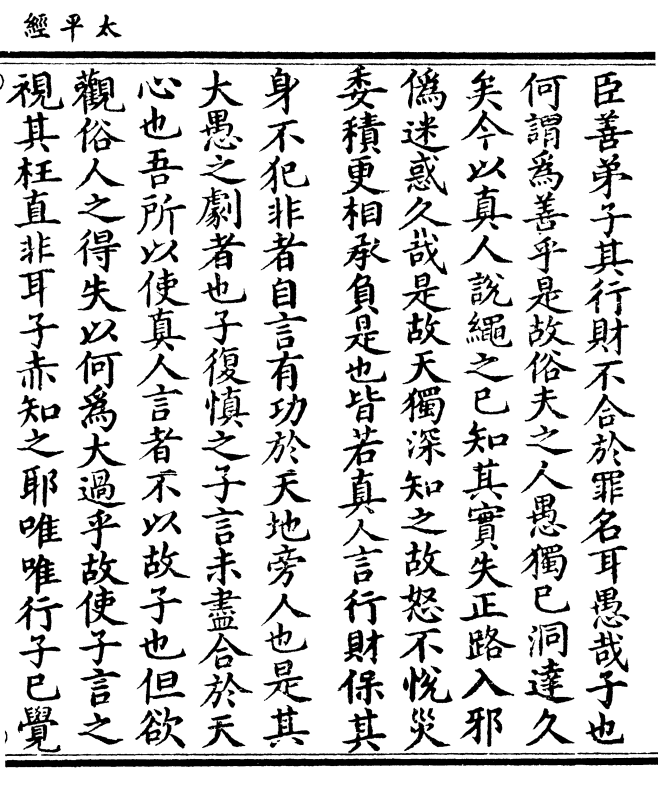 太平經
臣善弟子其行財不合於罪名耳愚哉子也
何謂爲善乎是故俗夫之人愚獨已洞達久
矣今以真人說繩之已知其實失正路入邪
僞迷惑久哉是故天獨深知之故怒不悅災
委積更相承負是也皆若真人言行財保其
身不犯非者自言有功於天地旁人也是其
大愚之劇者也子復慎之子言未盡合於天
心也吾所以使真人言者不以故子也但欲
觀俗人之得失以何爲大過乎故使子言之
視其枉直非耳子赤知之耶唯唯行子已覺